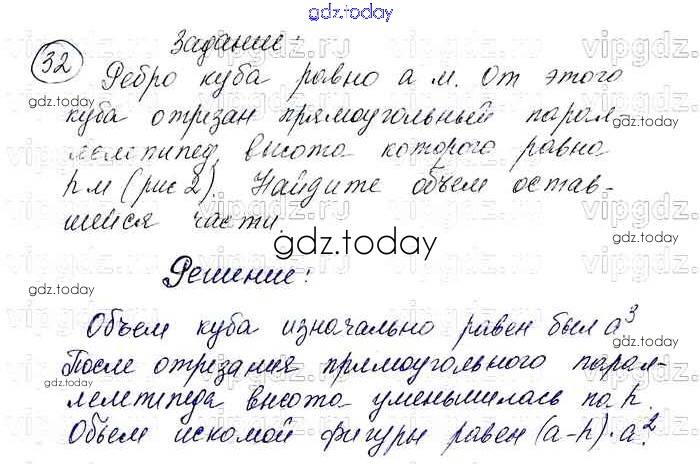 gdz.today
32
Задание:
Ребро куба равно а м. От этого
куба отрезан прямоугольный парал-
лелепипед, высота которого равна
h м (рис 2). Найдите объем остав-
шейся части.
gdz.today
Решение:
Объем куба изначально равен был a³
После отрезания прямоугольного парал-
лелепипеда высота уменьшилась на h
Объем искомой фигуры равен (a-h)·a².